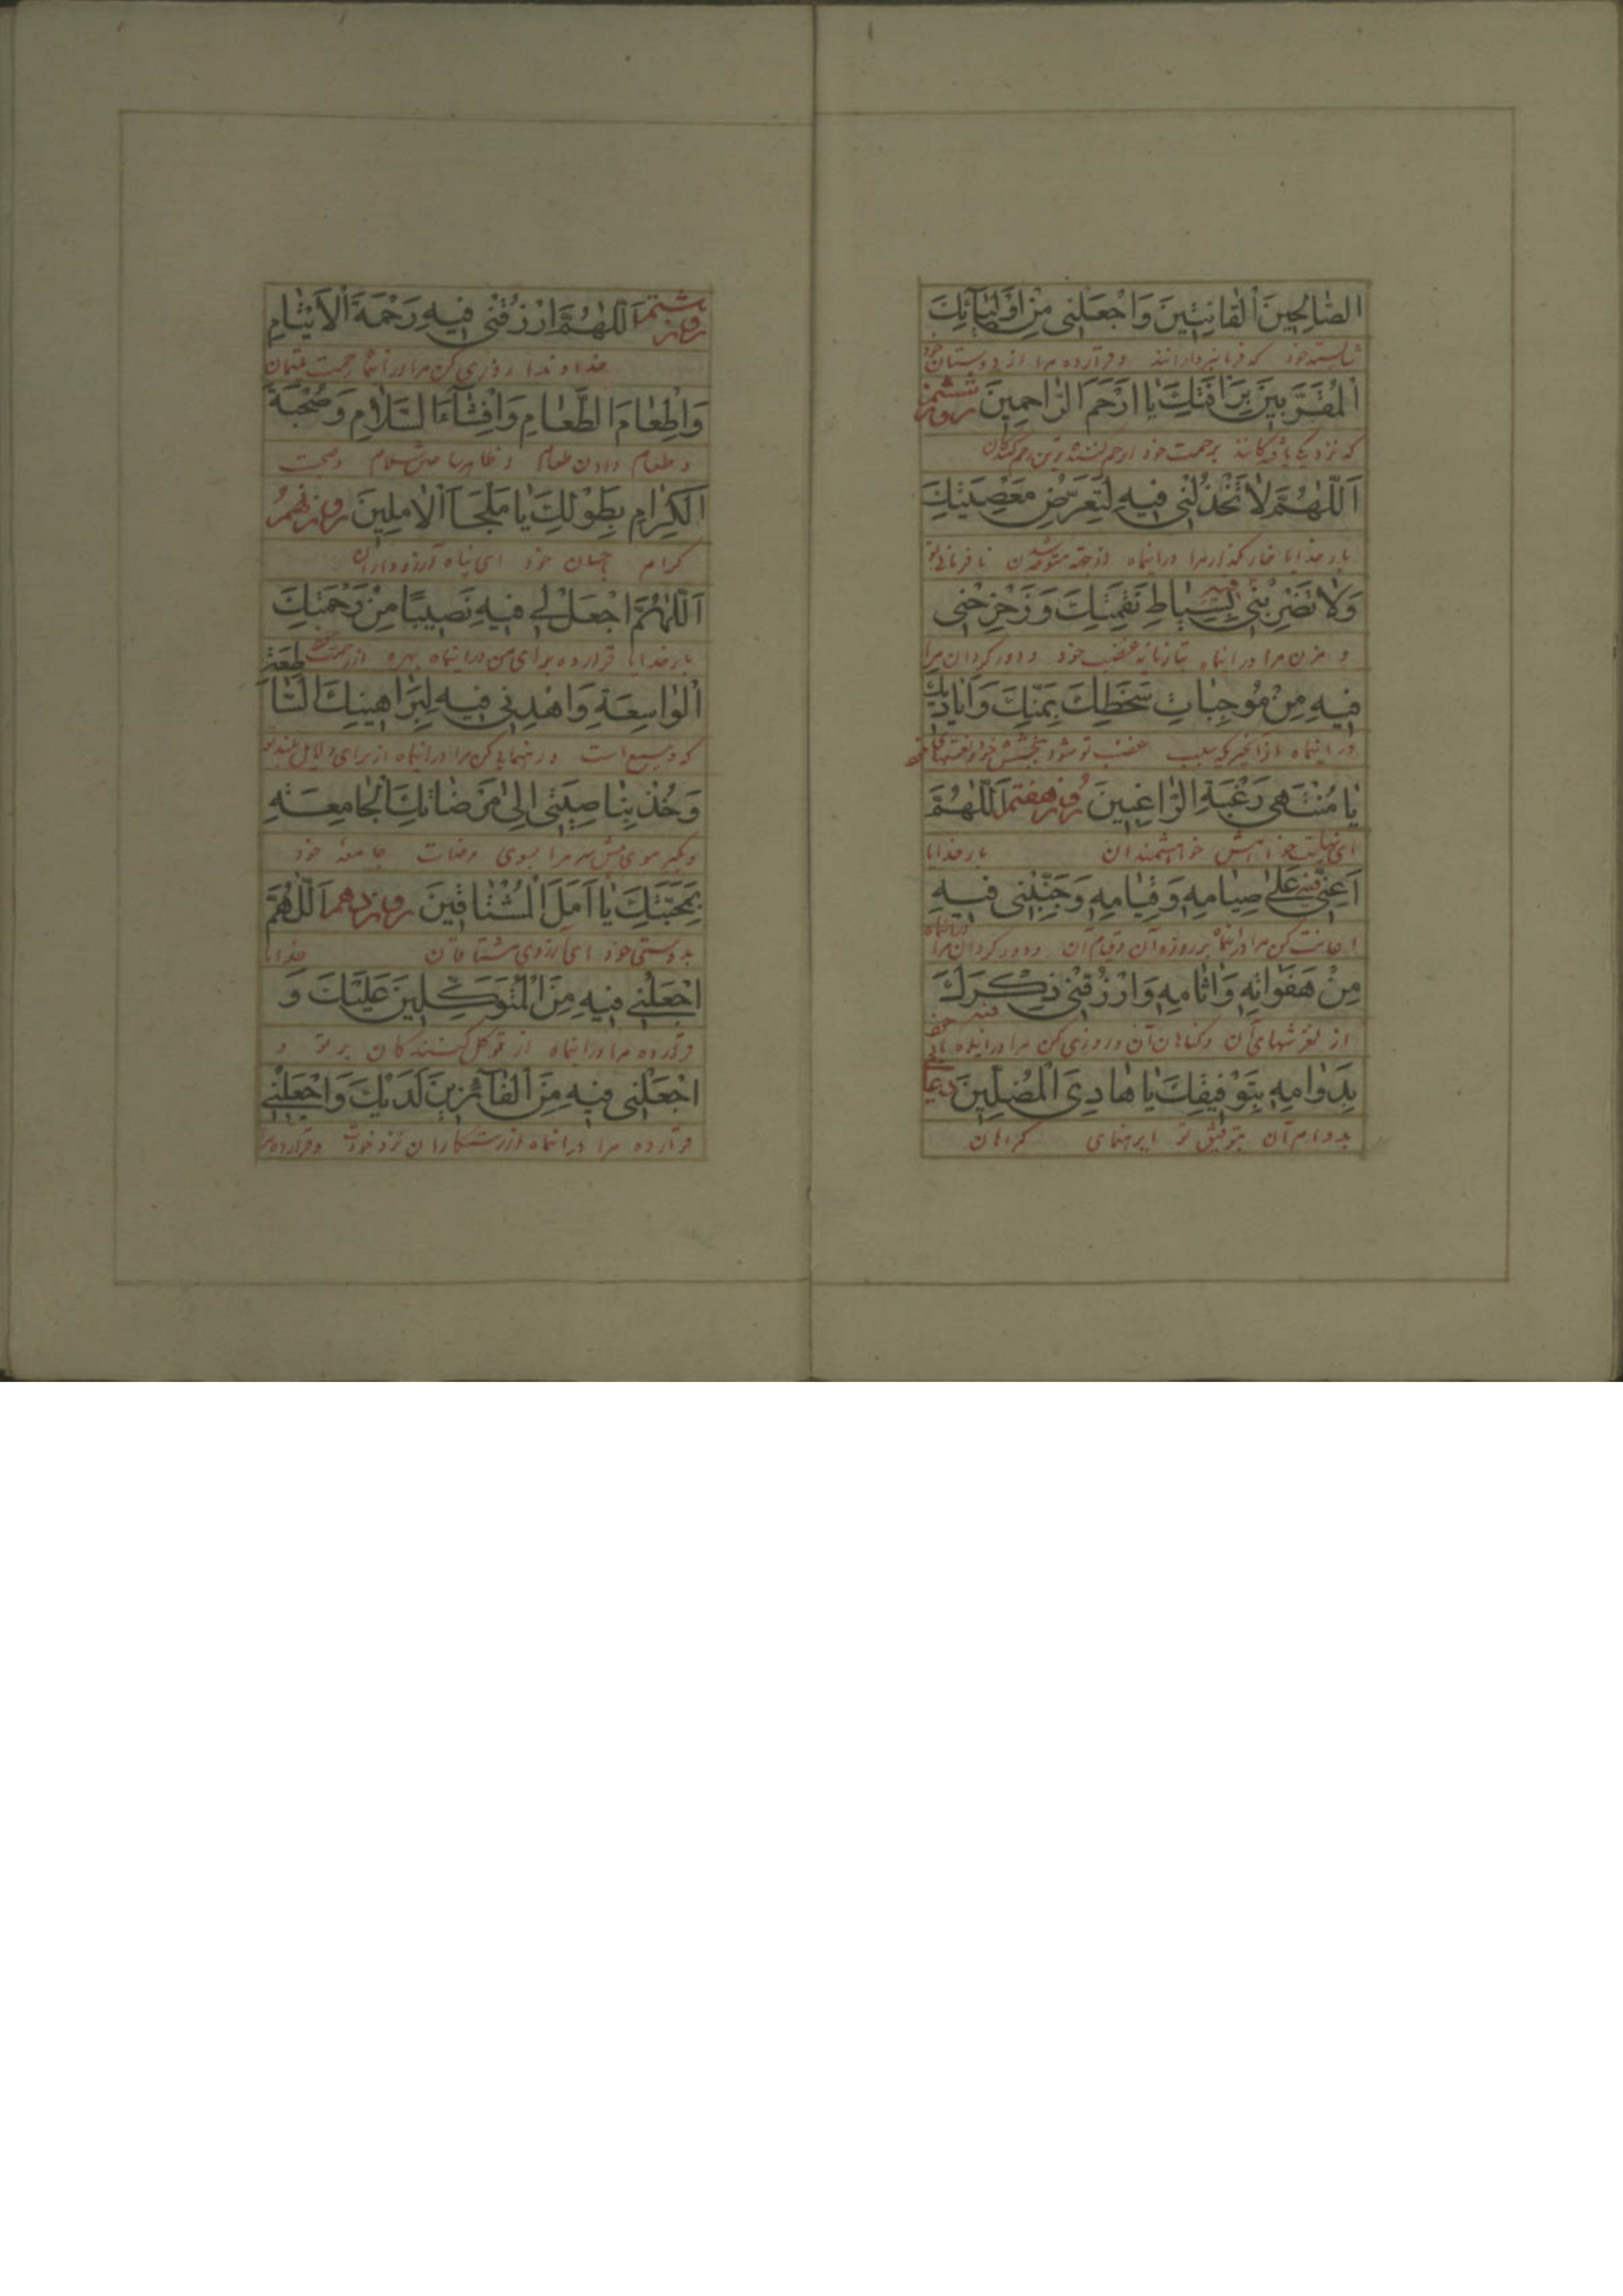 الصّالِحِينَ القانِتِينَ وَاجْعَلْنِي مِنْ اَوْلِيائِكَ
شایسته خود که فرمانبردارانند و قرار ده مرا از دوستان خود
الْمُقَرَّبِينَ بِرَأْفَتِكَ يا اَرْحَمَ الرّاحِمِينَ روز ششم
که نزدیک برحمت خود ای رحم کننده ترین رحم کنندگان
اَللّهُمَّ لا تَخْذُلْنِي فِيهِ لِتَعَرُّضِ مَعْصِيَتِكَ
بار خدایا خوار مگذار مرا در اینماه از جهة متوجه شدن نافرمانی تو
وَلا تَضْرِبْنِي فيه بِسِياطِ نَقِمَتِكَ وَزَحْزِحْنِي
و مزن مرا در اینماه بتازیانه غضب خود و دور گردان مرا
فِيهِ مِنْ مُوجِباتِ سَخَطِكَ بِمَنِّكَ وَاَيادِيكَ
در اینماه از آنچیزی که سبب غضب تو شود ببخشش خود و نعمتهای خود
يا مُنْتَهى رَغْبَةِ الرّاغِبِينَ روز هفتم اَللّهُمَّ
ای نهایت خواهش خواهشمندان بار خدایا
اَعِنِّي فيه عَلى صِيامِهِ وَقِيامِهِ وَجَنِّبْنِي فِيهِ
اعانت کن مرا در اینماه بر روزه آن و قیام آن و دور گردان مرا در اینماه
مِنْ هَفَواتِهِ وَاثامِهِ وَارْزُقْنِي فيه ذِكْرَكَ
از لغزشهای آن و گناهان آن و روزی کن مرا در اینماه
بِدَوامِهِ بِتَوْفِيقِكَ يا هادِيَ الْمُضِلِّينَ دعای
بدوام آن بتوفیق تو ای رهنمای گمراهان
روز هشتم اَللّهُمَّ ارْزُقْنِي فِيهِ رَحْمَةَ الْاَيْتامِ
خداوندا روزی کن مرا در اینماه رحمت یتیمان
وَاِطْعامَ الطَّعامِ وَاِفْشاءَ السَّلامِ وَصُحْبَةَ
و طعام دادن طعام و ظاهر ساختن سلام و صحبت
الْكِرامِ بِطَوْلِكَ يا مَلْجَأَ الْامِلِينَ روز نهم
کرام خود ای پناه آرزوداران
اَللّهُمَّ اجْعَلْ لِي فِيهِ نَصِيبًا مِنْ رَحْمَتِكَ
بار خدایا قرار ده برای من در اینماه بهره از رحمتت
الْواسِعَةِ وَاهْدِنِي فِيهِ لِبَراهِينِكَ السّاطِعَةِ
که وسیع است و رهنمایی کن مرا در اینماه از برای دلایل بلند تو
وَخُذْ بِناصِيَتِي اِلى مَرْضاتِكَ الْجامِعَةِ
و بگیر موی پیش سر مرا بسوی مرضات جامعهٔ خود
بِمَحَبَّتِكَ يا اَمَلَ الْمُشْتاقِينَ روز دهم اَللّهُمَّ
بدوستی خود ای آرزوی مشتاقان خدایا
اجْعَلْنِي فِيهِ مِنَ الْمُتَوَكِّلِينَ عَلَيْكَ وَ
قرار ده مرا در اینماه از توکل کنندکان بر تو و
اجْعَلْنِي فِيهِ مِنَ الْفائِزِينَ لَدَيْكَ وَاجْعَلْنِي
قرار ده مرا در اینماه از رستگاران نزد خودت و قرار ده مرا